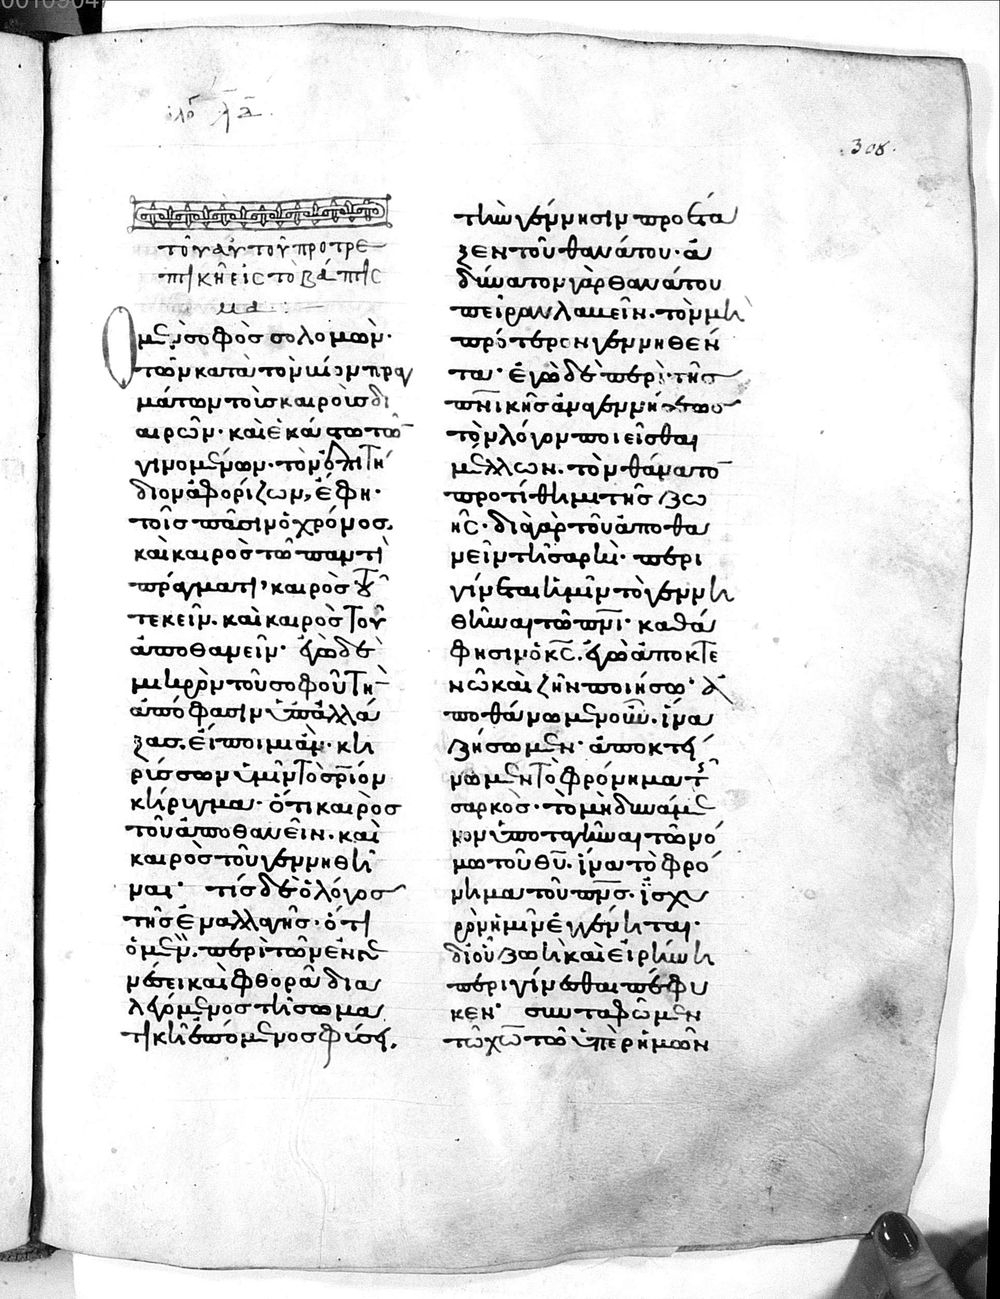 00109047
308.
τοῦ αὐτοῦ προτρε
πτικὴ εἰς τὸ βάπτισ
μα :
Ὁ μὲν σοφὸς σολομὼν·
τῶν κατὰ τὸν βίον πραγ
μάτων τοῖς καιροῖς δι
αιρῶν· καὶ ἑκάστω τῶ
γινομένων· τὸν
διον ἀφορίζων, ἔφη·
τοῖς πᾶσιν ὁ χρόνος.
καὶ καιρὸς τῶ παντὶ
πράγματι, καιρὸς τοῦ
τεκεῖν. καὶ καιρὸς τοῦ
ἀποθανεῖν· ἐγὼ δὲ
μικρὸν τοῦ σοφοῦ τὴ
ἀπόφασιν ὑπαλλά
ξας. εἴποιμι ἂν· κη
ρύσσων ὑμῖν τὸ σριον
κήρυγμα· ὅτι καιρὸς
τοῦ ἀποθανεῖν. καὶ
καιρὸς τοῦ γεννηθῆ
ναι· τίς δὲ ὁ λόγος
τῆς ἐναλλαγῆς· ὅτι
ὁ μὲν. περὶ τῶν ἐν γε
νέσει καὶ φθορᾶ δια
λεγόμενος τῆ σωμα
τικῆ ἑπόμενος φύσει.
τὴν γέννησιν προέτα
ξεν τοῦ θανάτου· ἀ
δύνατον γὰρ θανάτου
πεῖραν λαβεῖν. τὸν μὴ
πρότερον γεννηθέν
τα· ἐγὼ δὲ περὶ τῆς
πνικῆς ἀναγεννήσεως
τὸν λόγον ποιεῖσθαι
μέλλων. τὸν θάνατο
προτίθημι τῆς ζω
ῆς· διὰ γὰρ τοῦ ἀποθα
νεῖν τῆ σαρκὶ· περι
γίνεται ἡμῖν τὸ γεννη
θῆναι τῶ πνι· καθά
φησιν ὁ κς. ἐγὼ ἀποκτε
νῶ καὶ ζῆν ποιήσω· ἀ
ποθάνωμεν οὖν. ἵνα
ζήσωμεν· ἀποκτεί
νωμεν τὸ φρόνημα τῆς
σαρκὸς· τὸ μὴ δυνάμε
νον ὑποταγῆναι τῶ νό
μω τοῦ θυ. ἵνα τὸ φρό
νημα τοῦ πνς. ἰσχυ
ρὸν ἡμῖν ἐγγένηται·
δι' οὗ ζωὴ καὶ εἰρήνη
περιγίνεσθαι πέφυ
κεν· συνταφῶμεν
τῶ χω τῶ ὑπὲρ ἡμῶν